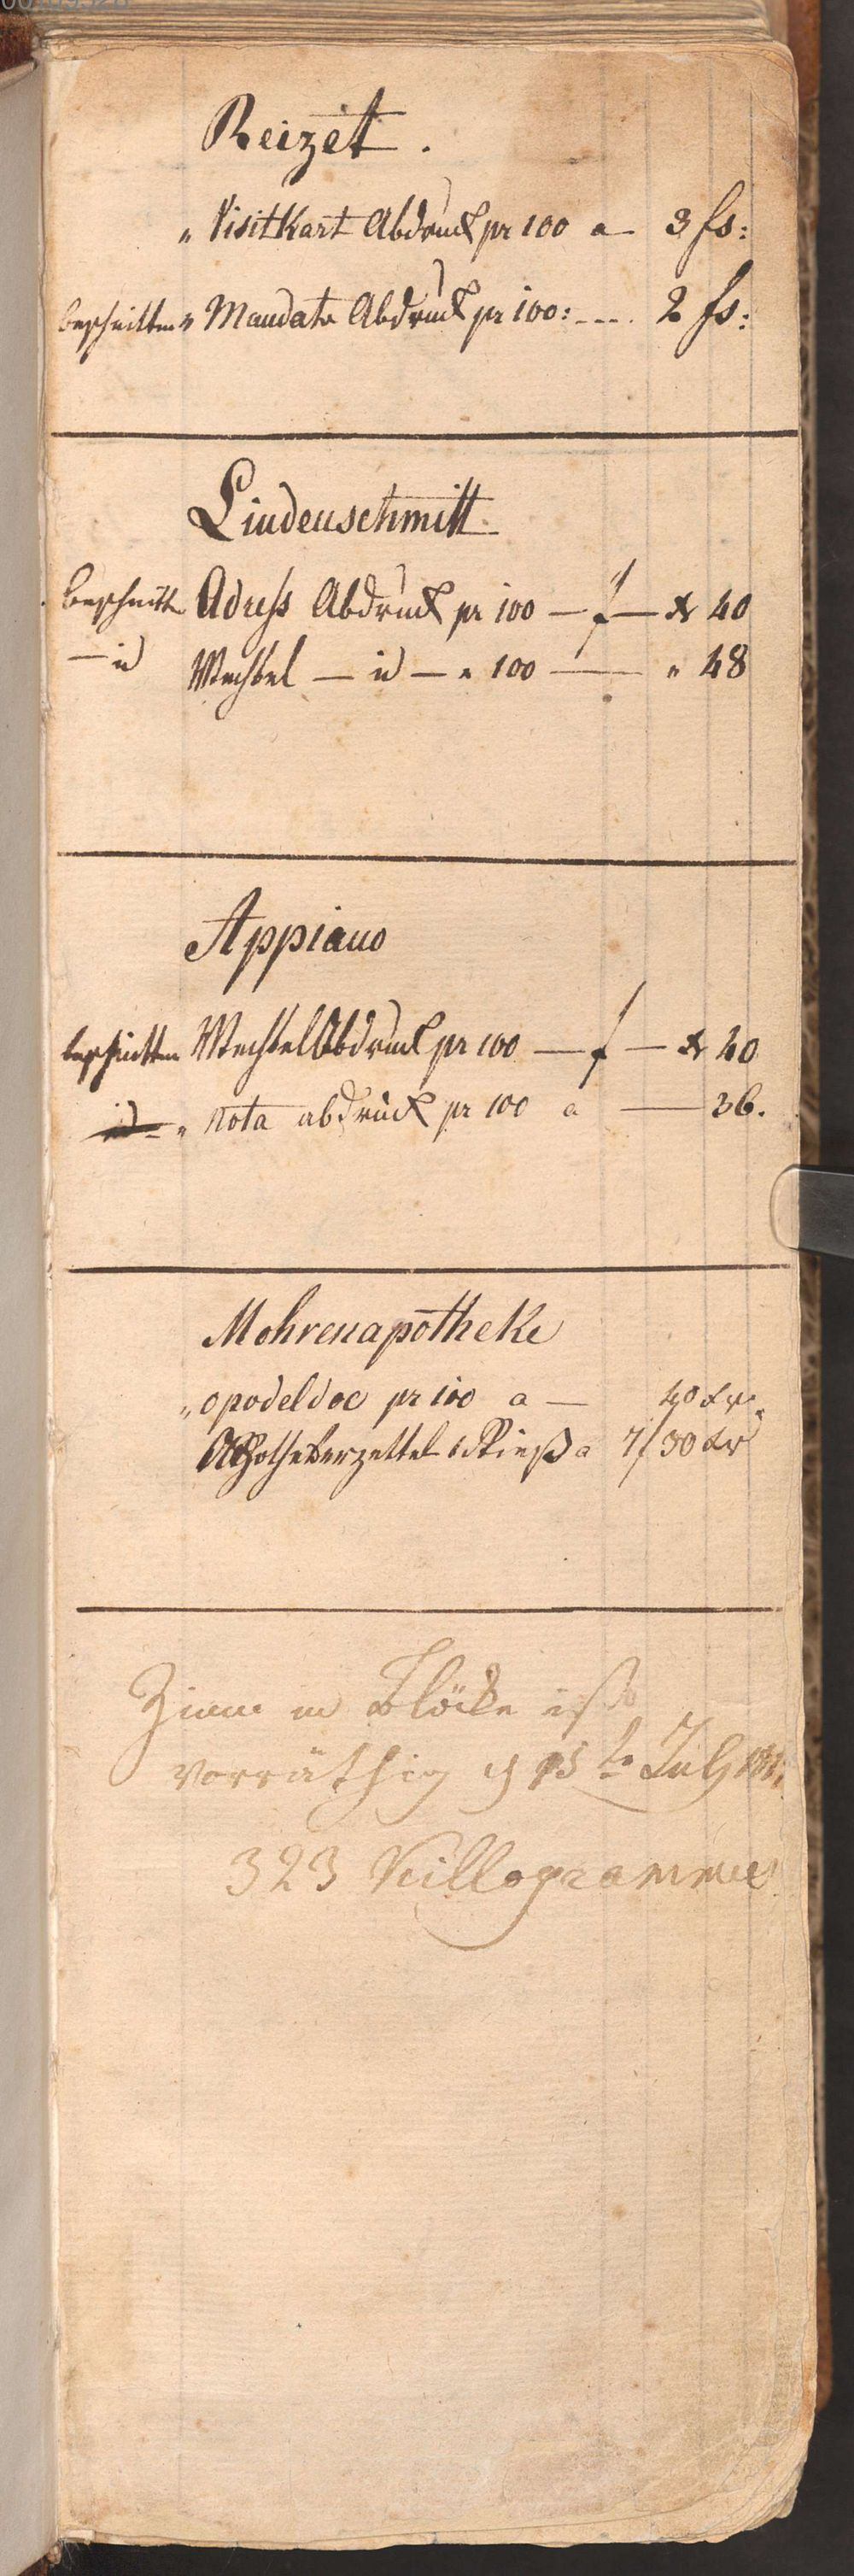 Reizet.
" Visitkart Abdruck pr 100 a — 3 fs:
beschnitten " Mandate Abdruck pr 100: - - - . 2 fs:
Lindenschmitt
beschnitte Adress Abdruck pr 100 — f — Xr 40
— id Wechsel — id — " 100 — " 48
Appiano
beschnitten Wechsel Abdruck pr 100 — f — Xr 40
id - " Nota abdruck pr 100 a — 36.
Mohrenapotheke
" opodeldoc pr 100 a — 40 Xr.
Apothekerzettel 1 Rieß a 7/30 Xr
Zinn in Blöcke ist
vorräthig d 15 te July
323 Killogramme